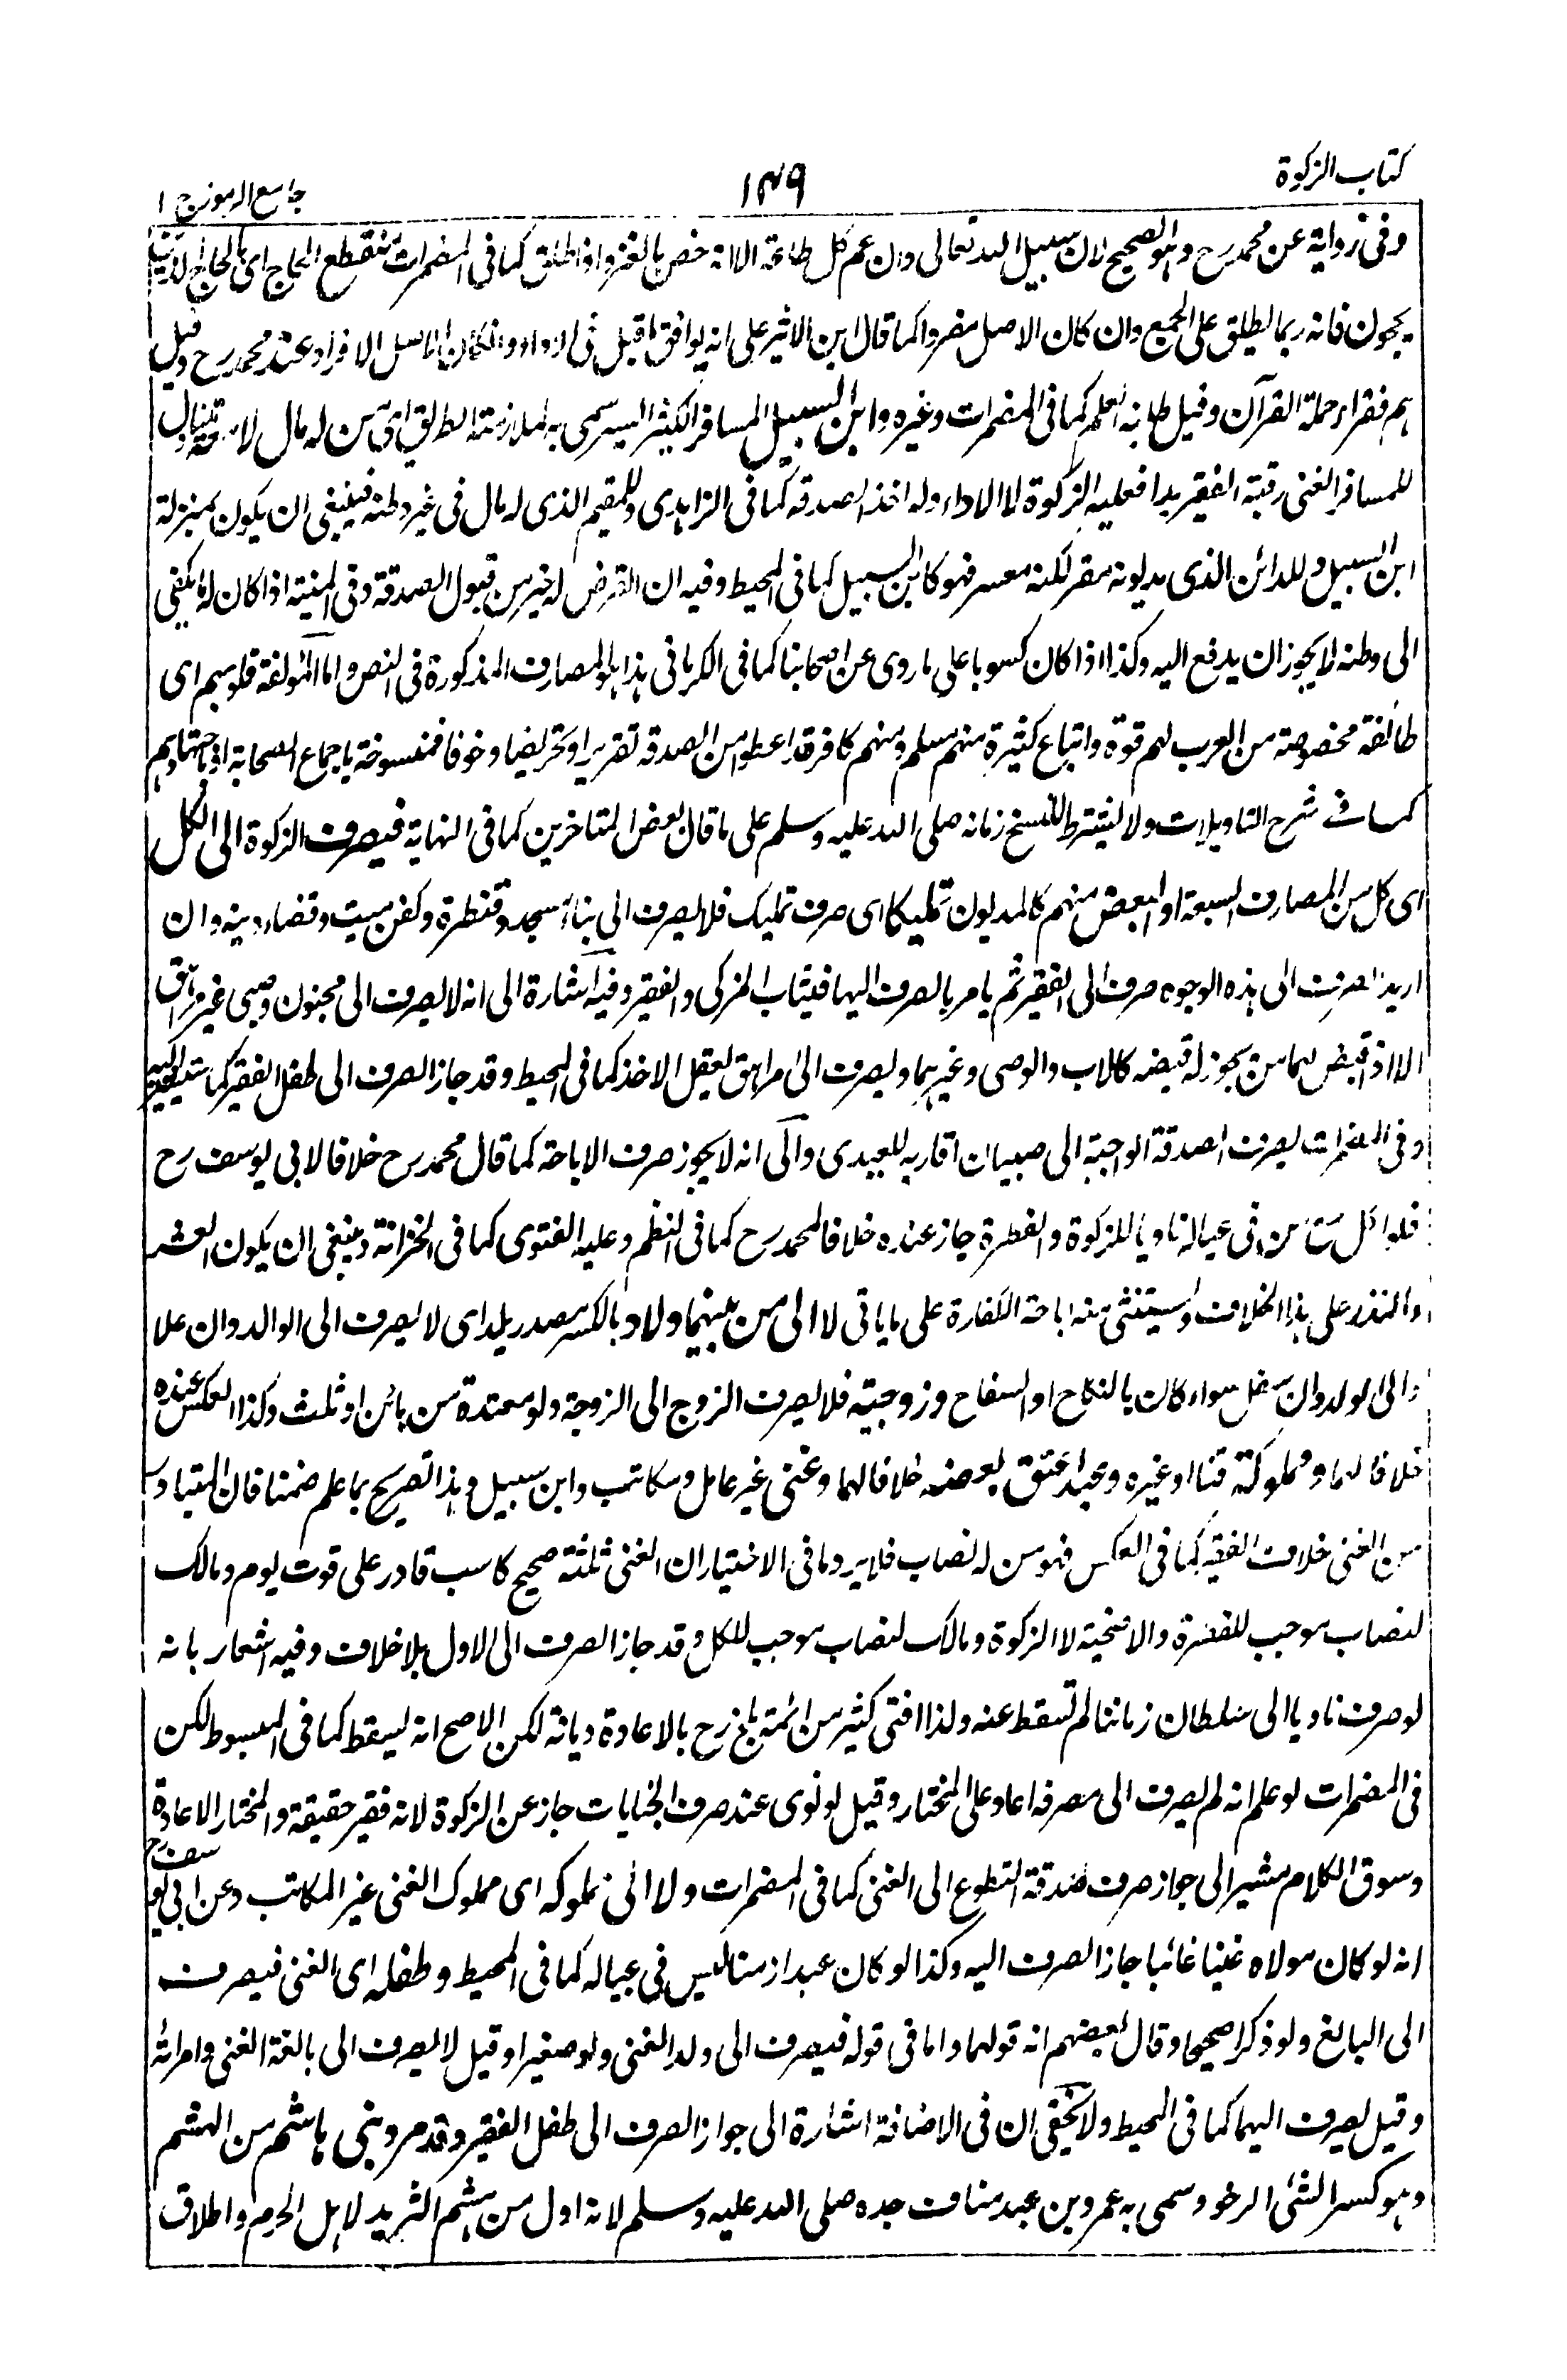 كتاب الزكوة
١٤٩
جامع الرموز ج ١
وفى رواية عن محمد رح وهو الصحيح لان سبيل الله تعالى وان عم كل طاعة الا انه خص بالغزو اذا اطلق كما فى المضمرات منقطع الحاج اى الحاج الذين
يحجون فانه ربما يطلق على الجمع وان كان الاصل مفردا كما قال ابن الاثير على انه يوافق ما قيل فى الافراد عند محمد رح وقيل
هم فقراء حملة القرآن وقيل طلبة العلم كما فى المضمرات وغيره وابن السبيل المسافر الكثير السير سمى به لملازمته الطريق اى من له مال لا معه
للمسافر الغنى رقبة الفقير يدا فعليه الزكوة لا الاداء وله اخذ الصدقة كما فى الزاهدى وللمقيم الذى له مال فى غير وطنه فينبغى ان يكون بمنزلة
ابن السبيل وللدائن الذى مديونه مقر لكنه معسر فهو كابن السبيل كما فى المحيط وفيه ان القرض له خير من قبول الصدقة وفى المنية اذا كان له ما يكفى
الى وطنه لا يجوز ان يدفع اليه وكذا اذا كان كسوبا على ما روى عن اصحابنا كما فى الكرمانى هذا هو المصارف المذكورة فى النص واما المؤلفة قلوبهم اى
طائفة مخصوصة من العرب لهم قوة واتباع كثيرة منهم مسلم ومنهم كافر قد اعطوا من الصدقة تقريرا وتحريضا وخوفا فمنسوخة باجماع الصحابة او باجتهادهم
كما فى شرح التاويلات ولا يشترط للنسخ زمانه صلى الله عليه وسلم على ما قال بعض المتاخرين كما فى النهاية فيصرف الزكوة الى الكل
اى كل من المصارف السبعة او البعض منهم كالمديون تمليكا اى صرف تمليك فلا يصرف الى بناء مسجد وقنطرة وكفن ميت وقضاء دينه وان
اريد الصرف الى هذه الوجوه صرف الى الفقير ثم يامر بالصرف اليها فيثاب المزكى والفقير وفيه اشارة الى انه لا يصرف الى مجنون وصبى غير مراهق
الا اذا قبض لهما من يجوز له قبضه كالاب والوصى وغيرهما ويصرف الى مراهق يعقل الاخذ كما فى المحيط وقد جاز الصرف الى طفل الفقير كما
وفى المضمرات يصرف الصدقة الواجبة الى صبيان اقاربه للعيدى والى انه لا يجوز صرف الاباحة كما قال محمد رح خلافا لابى يوسف رح
فلو اكل من فى عياله ناويا للزكوة والفطرة جاز عنده خلافا لمحمد رح كما فى النظم وعليه الفتوى كما فى الخزانة وينبغى ان يكون العشر
والنذر على هذا الخلاف ويستثنى منه اباحة الكفارة على ما ياتى لا الى من بينهما ولاد بالكسر مصدر يلد اى لا يصرف الى الوالد وان علا
والى الولد وان سفل سواء كان بالنكاح او السفاح وزوجية فلا يصرف الزوج الى الزوجة ولو معتدة من بائن او ثلث وكذا العكس عنده
خلافا لهما ومملوكه قنا او غيره وعبد اعتق بعضه خلافا لهما وغنى غير عامل ومكاتب وابن سبيل وهذا تصريح بما علم ضمنا فان المتبادر
من الغنى خلاف الفقير كما فى العكس فهو من له نصاب فلا يرد ما فى الاختيار ان الغنى ثلثة صحيح كاسب قادر على قوت يوم ومالك
لنصاب موجب للفطرة والاضحية لا الزكوة ومالك لنصاب موجب للكل وقد جاز الصرف الى الاول بلا خلاف وفيه اشعار بانه
لو صرف ناويا الى سلطان زماننا لم تسقط عنه ولذا افتى كثير من ائمة بلخ رح بالاعادة ديانة لكن الاصح انه يسقط كما فى المبسوط لكن
فى المضمرات لو علم انه لم يصرف الى مصرفه اعاد على المختار وقيل لو نوى عند صرف الجنايات جاز عن الزكوة لانه فقير حقيقة والمختار الاعادة
وسوق الكلام مشير الى جواز صرف صدقة التطوع الى الغنى كما فى المضمرات ولا الى مملوكه اى مملوك الغنى غير المكاتب وعن ابى يوسف رح
انه لو كان مولاه غنيا غائبا جاز الصرف اليه وكذا لو كان عبدا زمنا ليس فى عياله كما فى المحيط وطفله اى الغنى فيصرف
الى البالغ ولو ذكرا صحيحا وقال بعضهم انه قولهما واما فى قوله فيصرف الى ولد الغنى ولو صغيرا وقيل لا يصرف الى بالغة الغنى وامرأته
وقيل يصرف اليهما كما فى المحيط ولا يخفى ان فى الاضافة اشارة الى جواز الصرف الى طفل الفقير وقد مر وبنى هاشم من الهشم
وهو كسر الشئ الرخو وسمى به عمرو بن عبد مناف جده صلى الله عليه وسلم لانه اول من هشم الثريد لاهل الحرم واطلاق